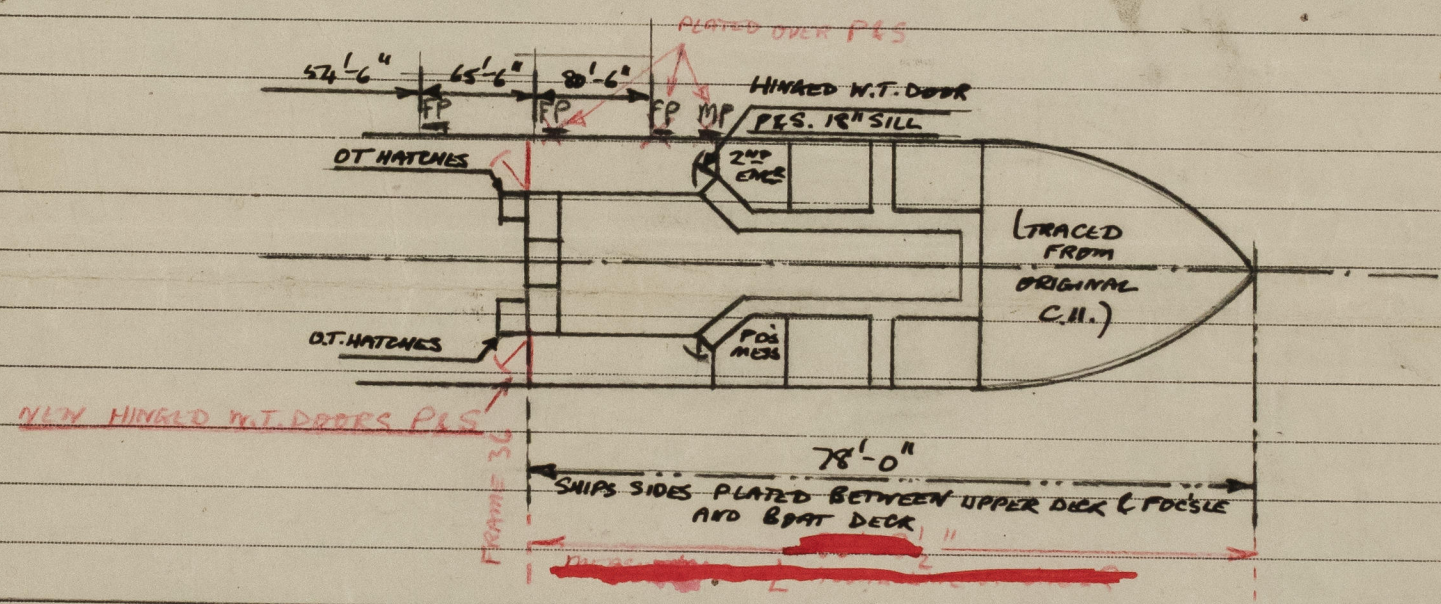 PLATED OVER P&S
54'-6"
65'-6"
80'-6"
HINGED W.T. DOOR
P&S. 18" SILL
FP
FP
FP
MP
OT HATCHES
2ND
ENGR
(TRACED
FROM
ORIGINAL
C.H.)
O.T. HATCHES
PO's
MESS
NEW HINGED W.T. DOORS P&S
FRAME 36
78'-0"
SHIPS SIDES PLATED BETWEEN UPPER DECK & FOC'SLE
AND BOAT DECK
½"